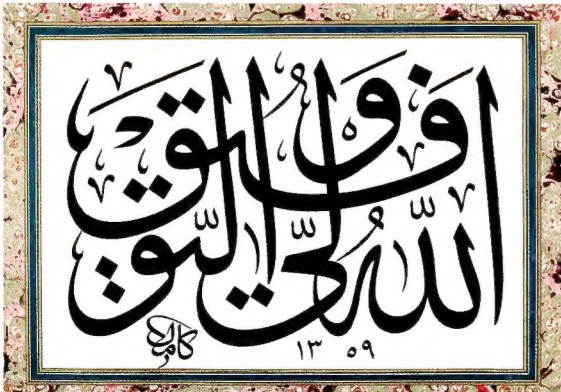 الله ولي التوفيق
١٣٥٩